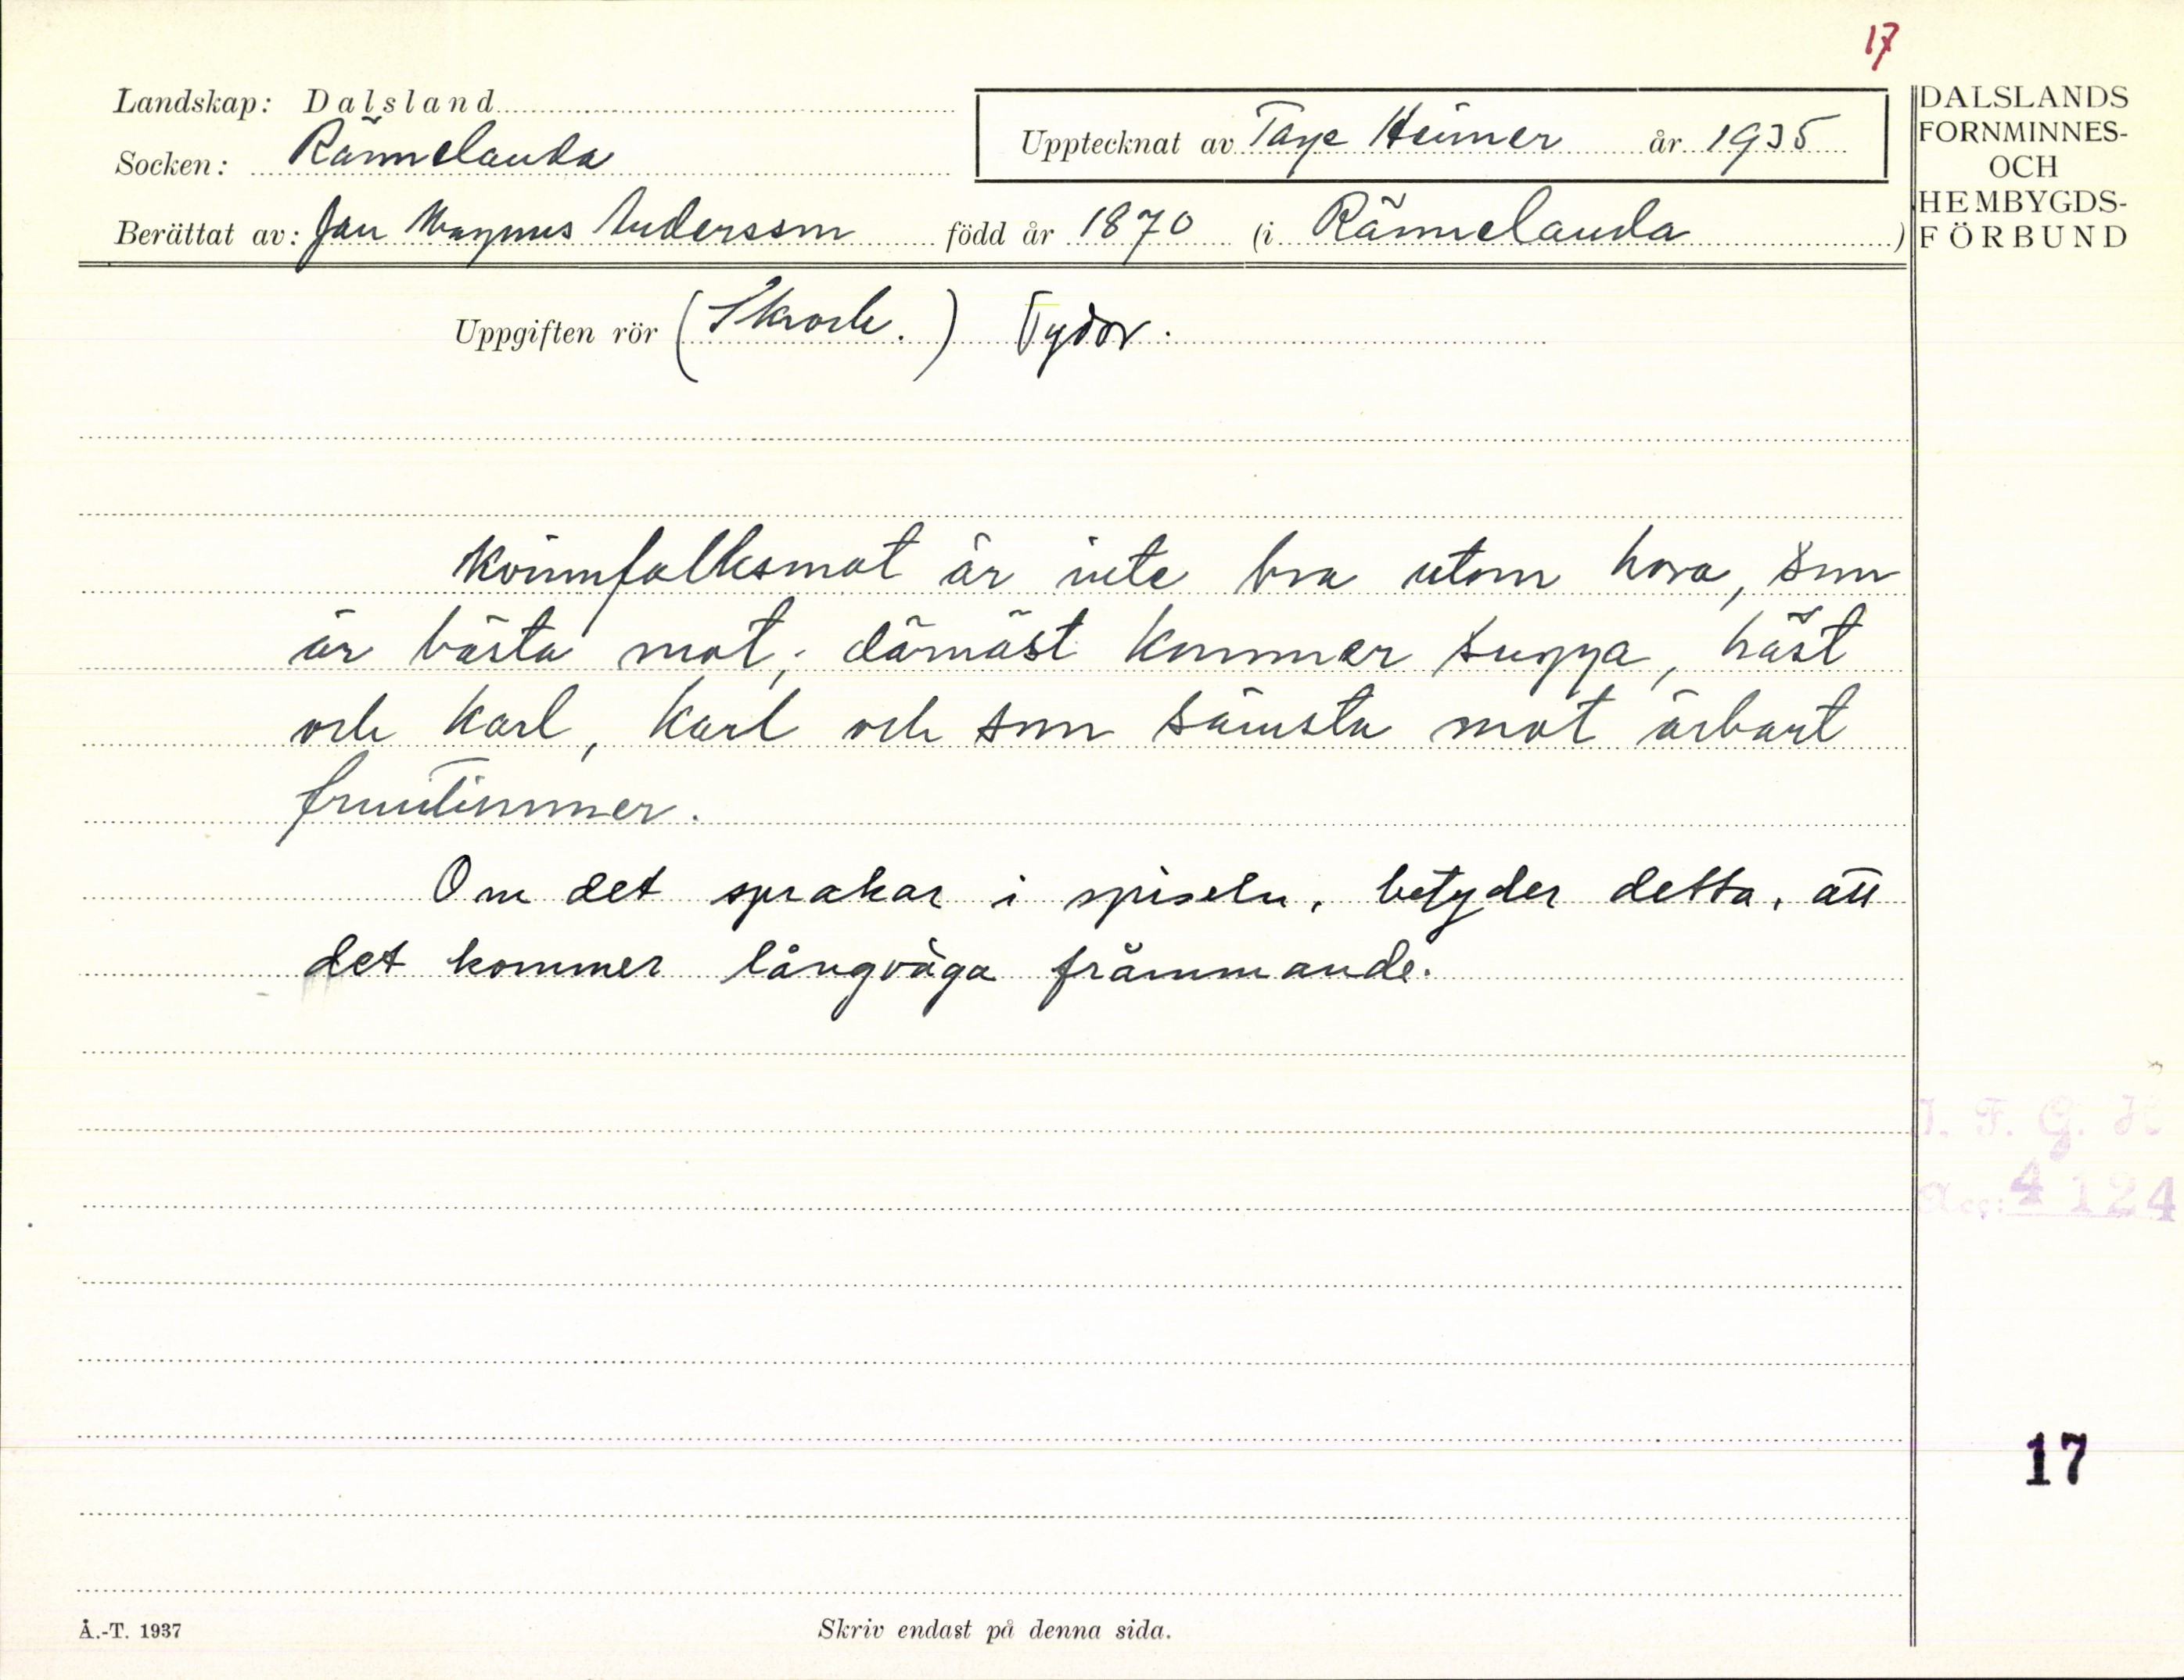 17
Landskap: Dalsland
Socken: Rännelanda
Upptecknat av Tage Heimer år 1935
Berättat av: Jan Magnus Andersson född år 1870 (i Rännelanda)
DALSLANDS
FORNMINNES-
OCH
HEMBYGDS-
FÖRBUND
Uppgiften rör (Skrock.) Tydor.
Kvinnfolksmöt är inte bra utom hora, som
är bästa möt; därnäst kommer sugga, häst
och karl, karl och som sämsta möt ärbart
fruntimmer.
Om det sprakar i spiseln, betyder detta, att
det kommer långväga främmande.
I. F. G. H
Acc: 4124
17
Å.-T. 1937
Skriv endast på denna sida.